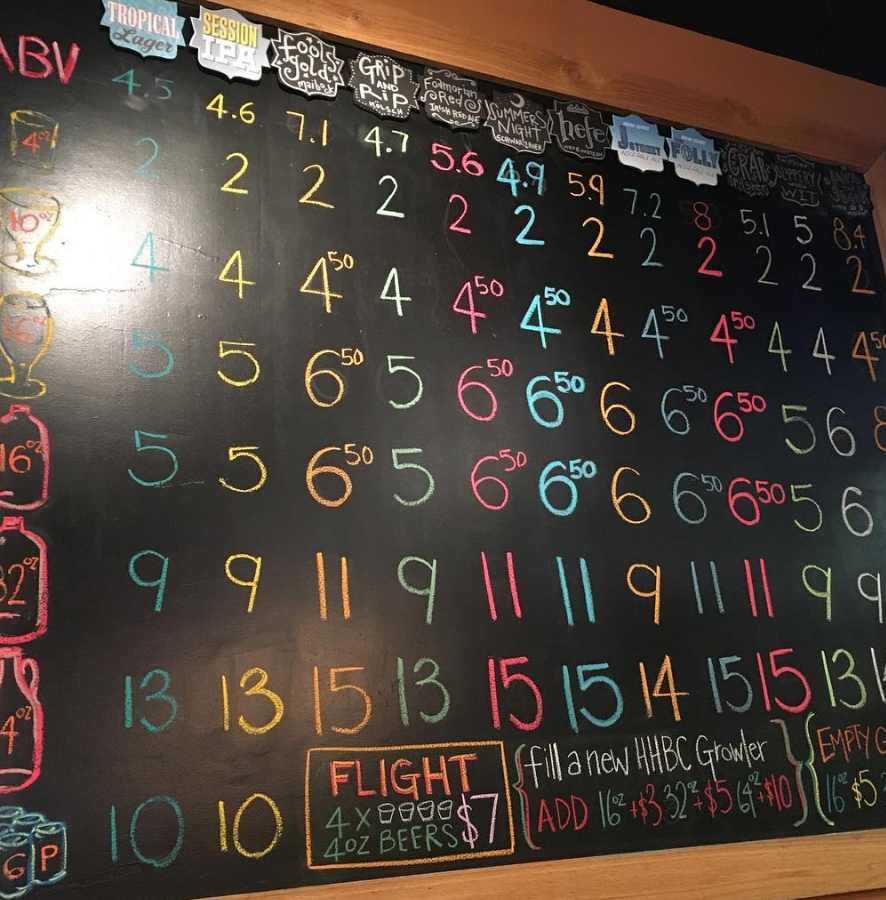 TROPICAL Lager SESSION IPA fools gold maibock GRIP AND RIP KÖLSCH Fomorian Red IRISH RED ALE SUMMERS NIGHT SCHWARZBIER hefe J STREET FOLLY CRAB SLIPPERY WIT
ABV 4.5 4.6 7.1 4.7 5.6 4.9 5.9 7.2 8 5.1 5 8.4
4oz 2 2 2 2 2 2 2 2 2 2 2 2
10oz 4 4 4.50 4 4.50 4.50 4 4.50 4.50 4 4 4.50
16oz 5 5 6.50 5 6.50 6.50 6 6.50 6.50 5 6 8
16oz 5 5 6.50 5 6.50 6.50 6 6.50 6.50 5 6
32oz 9 9 11 9 11 11 9 11 11 9 9
4oz 13 13 15 13 15 15 14 15 15 13
6P 10 10
FLIGHT
4X
4OZ BEERS $7
fill a new HHBC Growler
ADD 16oz +$3 32oz +$5 64oz +$10
EMPTY G
16oz $5